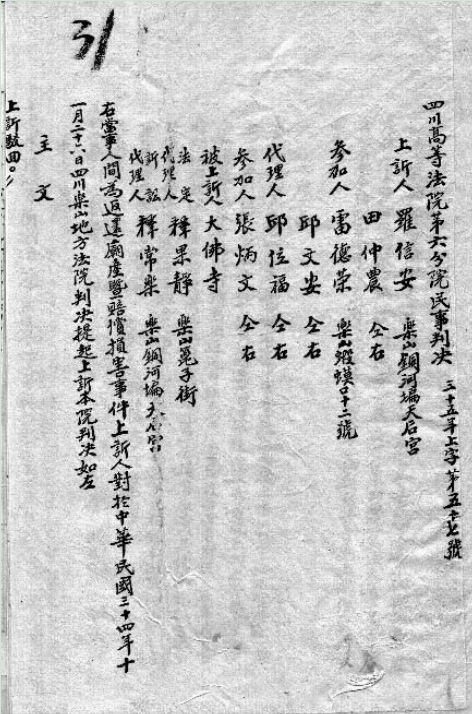 31
四川高等法院第六分院民事判決 三十五年上字第五十七號
上訴人 羅信安 樂山銅河塥天后宮
田仲農 仝右
參加人 雷德榮 樂山蝦蟆口十二號
邱文安 仝右
代理人 邱位福 仝右
參加人 張炳文 仝右
被上訴人 大佛寺
法定代理人 釋果靜 樂山篼子街
訴訟代理人 釋常樂 樂山銅河塥天后宮
右當事人間為返還廟產暨賠償損害事件上訴人對於中華民國三十四年十
一月二十六日四川樂山地方法院判決提起上訴本院判決如左
主文
上訴駁回